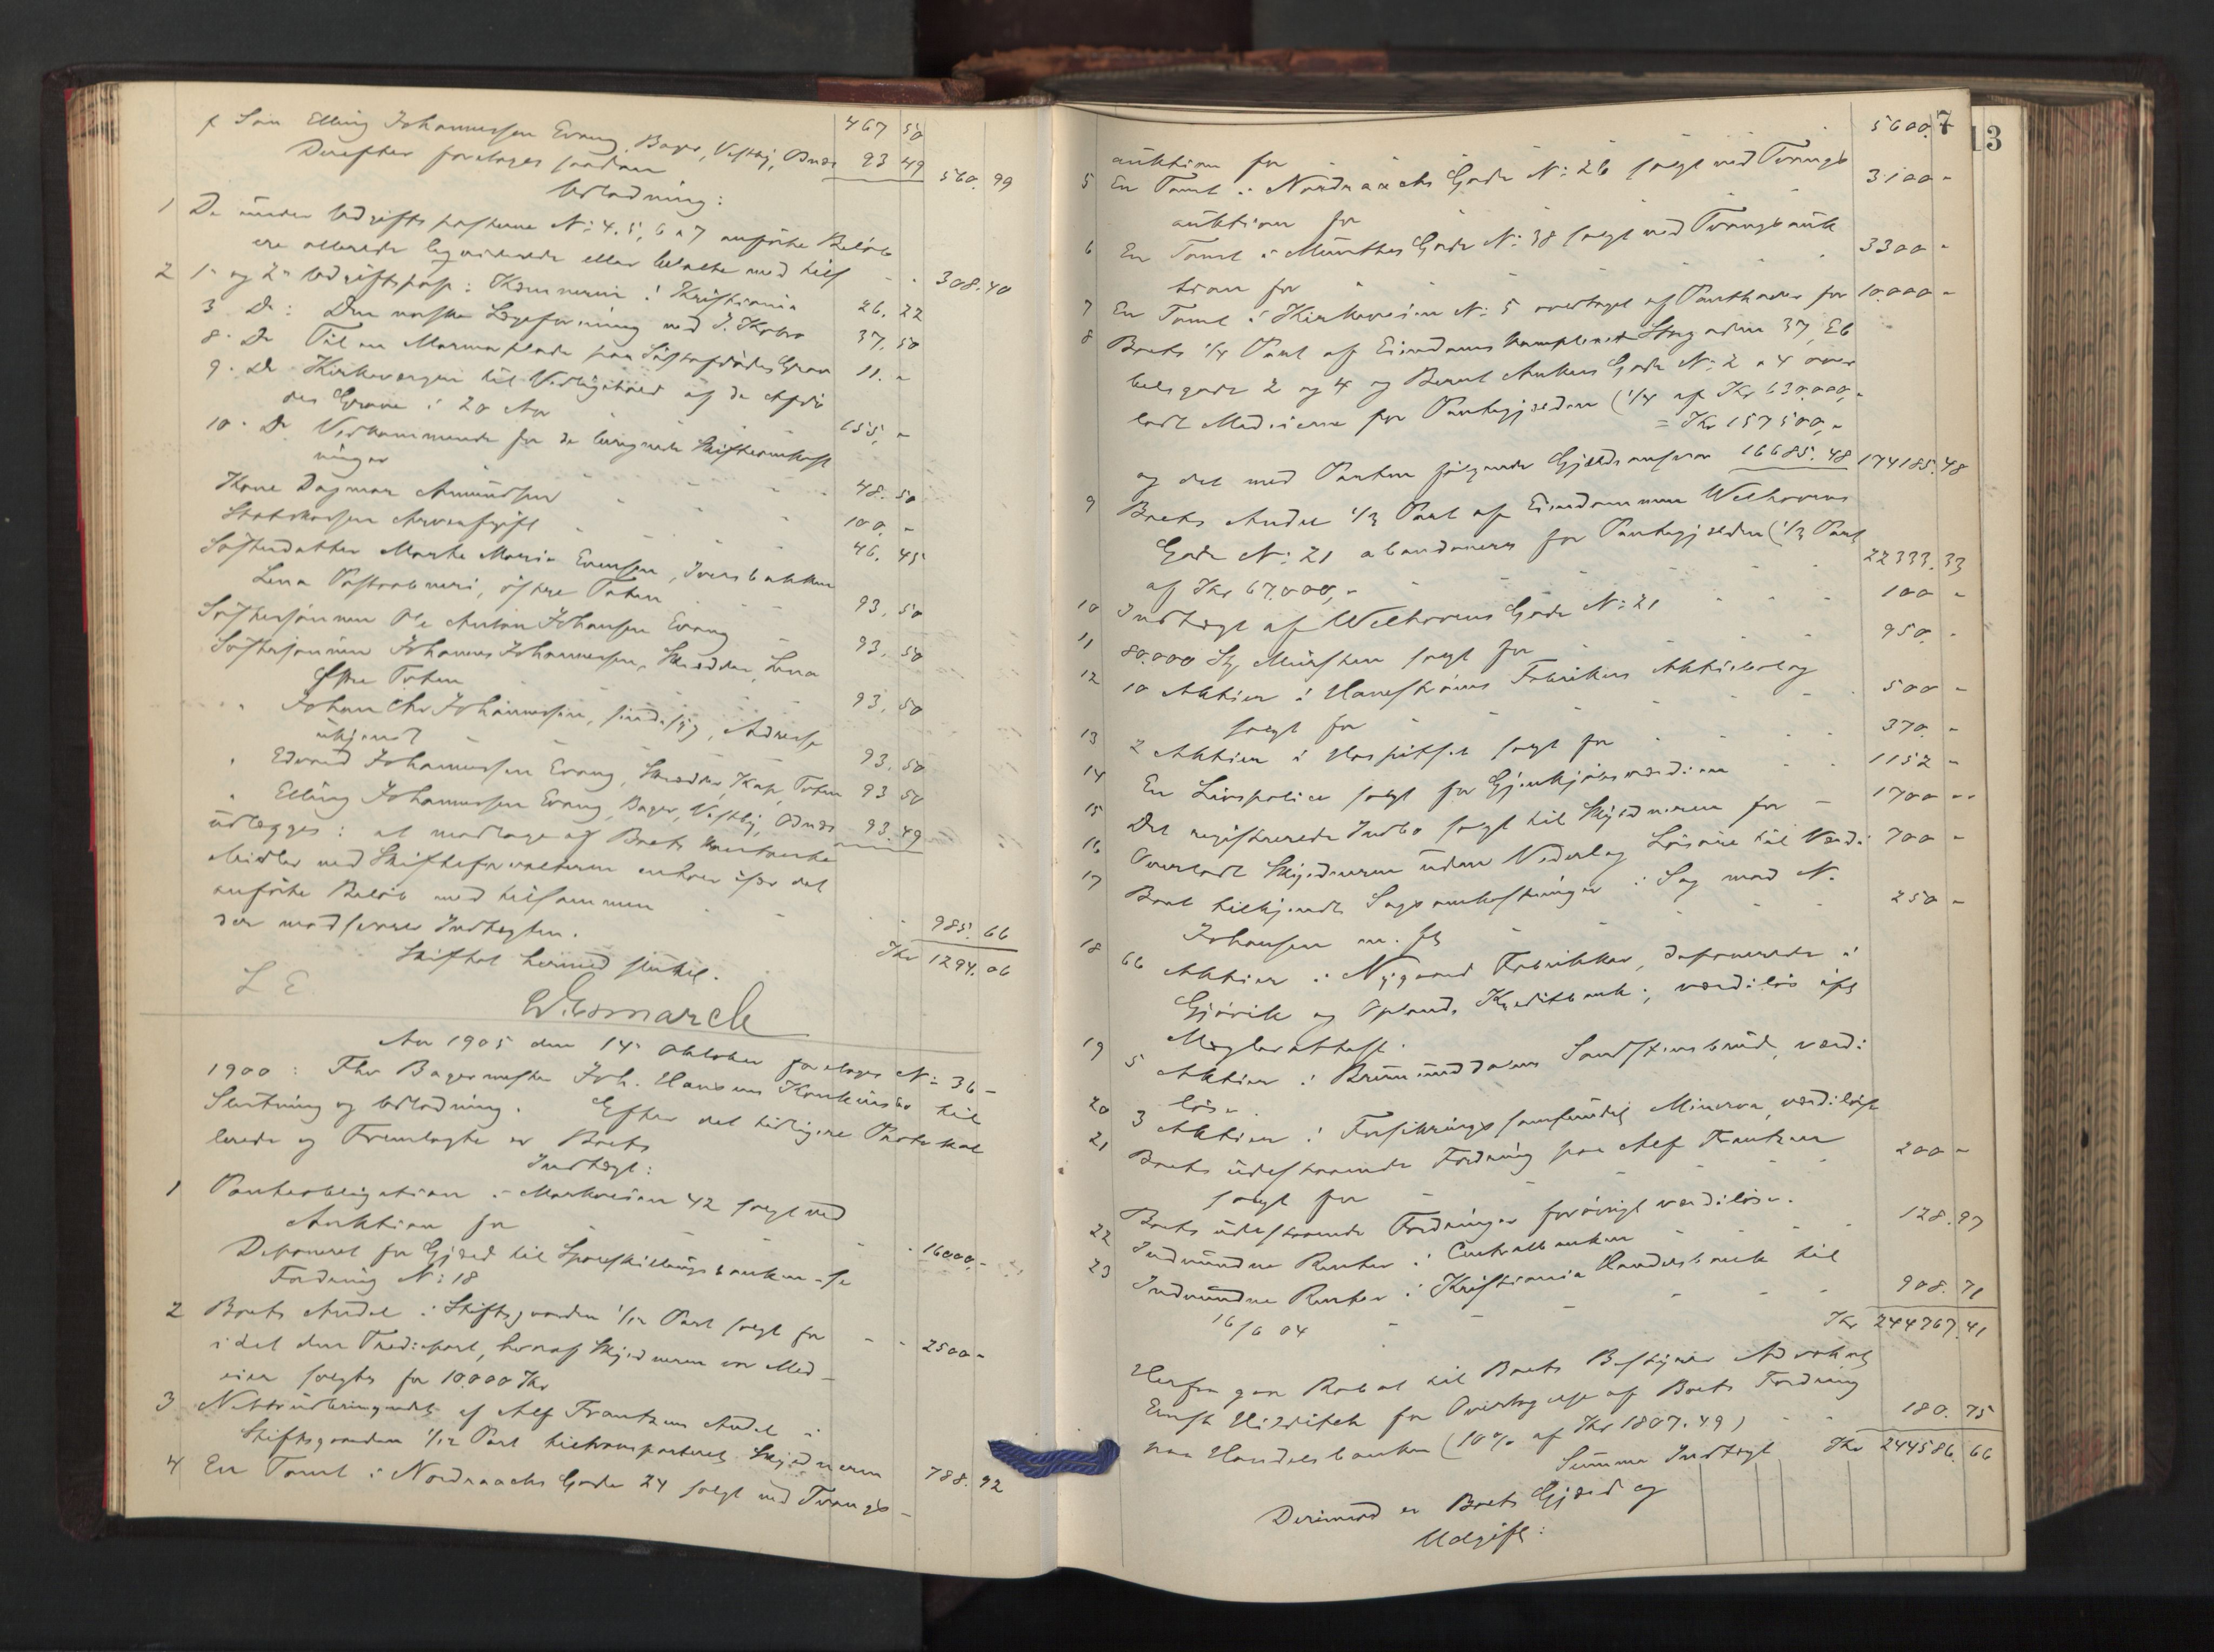 f Søn Elling Johannessen Evang, Bager, Vestby, Odnæs 467 50
93 49
Derefter foretoges saadan 560. 99
Udlodning:
1 De under Udgiftsposterne No: 4. 5, 6 a 7 anførte Beløb
ere allerede liqviderede eller betalte med tils - - 308. 40
2 1ste og 2den Udgiftspost: Kæmneren i Kristiania 26. 22
3 Do: Den norske Lægeforening ved J. 37. 50
8. Do Til en Marmorplade paa Grav 11. -
9. Do Kirkevergen til Vedligehold af de Afdø
des Grave i 20 Aar 155, -
10. Do Vedkommende for de beregnede Skifteomkost
ninger 48. 50
Kone Dagmar Amundsen - - - 100, -
Statskassen Arveafgift - - - 46. 45
Søsterdatter Marthe Marie Evensen,
Lena Postaabneri, østre Toten 93. 50
Søstersønnen Ole Anton Johansen Evang 93. 50
Søstersønnen Johannes Johannessen, Skrædder, Lena
Østre Toten 93. 50
" Johan Chr Johannessen, sindssyg, Adresse
ukjendt 93. 50
" Edvard Johannessen Evang, Skrædder, Kap, Toten 93 50
" Elling Johannessen Evang, Bager, Vestby, Odnæs 93. 49
udlægges: at modtage af Boets kontante
Midler ved Skifteforvalteren enhver især det
anførte Beløb med tilsammen - - - 985. 66
der modsvarer Indtægten. Kr 1294. 06
Skiftet hermed sluttet.
L E.
Aar 1905 den 14de Oktober foretoges No: 36 -
1900: Fhv Bagermester Joh. Hansens Konkursbo til
Slutning og Udlodning. Efter det tidligere Protokol
lerede og Fremlagte er Boets
Indtægt:
1 Panteobligation i Markveien 42 solgt ved
Auktion for - - - 16000. -
Deponeret for Gjæld til Sparskillingsbanken - se
Fordring No: 18
2 Boets Andel i Skiftsgaarden 1/12 Part solgt for - - 2500 -
idet den Trediepart, hvoraf Skyldneren var Med-
eier solgtes for 10.000 Kr
3 Nettoudbringendet af Alf Frantzens Andel i
Skiftsgaarden 1/12 Part tiltransporteret Skyldneren 788. 92
4 En Tomt i Nordraachs Gade 24 solgt ved Tvangs-
7
13
auktion for 5600. -
5 En Tomt i Nordraachs Gade No: 26 solgt ved Tvangs
auktion for 3100 -
6 En Tomt i Munthes Gade No: 38 solgt ved Tvangsauk
tion for 3300 -
7 En Tomt i Kirkeveien No: 5 overtaget af Panthaver for 10.000 -
8 Boets 1/4 Part af Eiendomskomplexet Storgaden 37, El
belsgade 2 og 4 og Bernt Ankers Gade No: 2 a 4 over
ladt Medeierne for Pantegjælden (1/4 af Kr 630.000, -
= Kr 157500, -
og det med Panten følgende Gjældsansvar 16685. 48 174185. 48
9 Boets Andel 1/3 Part af Eiendommen Welhavens
Gade No: 21 abandoneres for Pantegjælden (1/3 Part
af Kr 67.000, - 22333. 33
10 Indtægt af Welhavens Gade No: 21 100 -
11 80.000 Stk Mursten solgt for 950. -
12 10 Aktier i Fabrikers Aktiebolag
solgt for 500 -
13 2 Aktier i Hospitset solgt for 370. -
14 En Livspolice solgt for Gjenkjøbsværdien 1152 -
15 Det registrerede Indbo solgt til Skyldneren for - 1700 -
16 Overladt Skyldneren uden Vederlag Løsøre til Værdi 700 -
17 Boet tilkjendt Sagsomkostninger i Sag mod N.
Johansen m. fl 250 -
18 66 Aktier i Nygaard Fabrikker, deponerede i
Gjøvik og Oplands Kreditbank; værdiløs ifl
Meglerattest.
19 5 Aktier i Brumunddalens Sandstensbrud, værdi
løse.
20 3 Aktier i Forsikringsselskabet Minerva, værdiløse
21 Boets udestaaende Fordring paa Alf Frantzen
solgt for 200 -
Boets udestaaende Fordringer forøvrigt værdiløse.
22 Indvundne Renter i Centralbanken 128. 97
23 Indvundne Renter i Kristiania Handelsbank til
16/6 04 - - 908. 71
Kr 244767. 41
Herfra gaar Rabat til Boets Bestyrer Advokat
Ernst for Overtagelse af Boets Fordring
paa Handelsbanken (10 % af Kr 1807. 49) - - 180. 75
Summa Indtægt Kr 244586. 66
Derimod er Boets Gjæld og
Udgift: